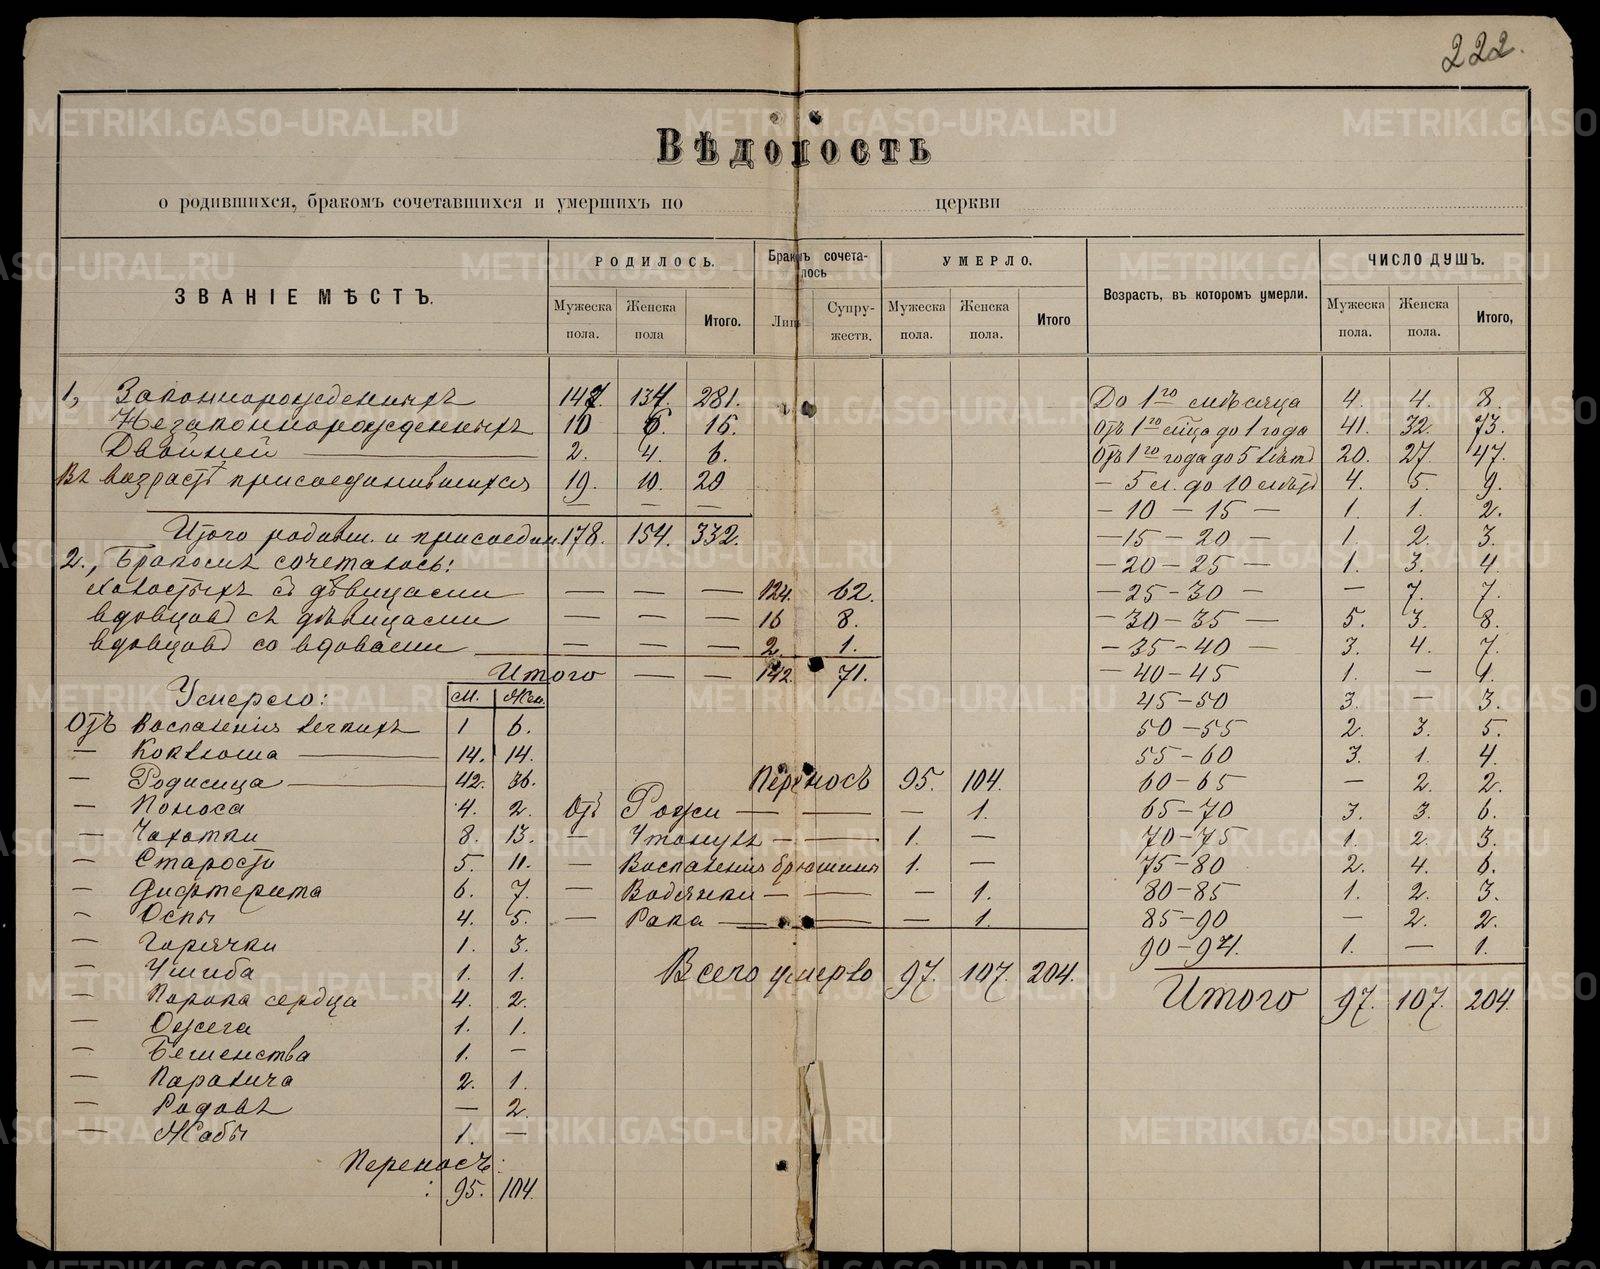 222.
Вѣдомость
о родившихся, бракомъ сочетавшихся и умершихъ по церкви
ЗВАНІЕ МѢСТЪ. РОДИЛОСЬ. Бракомъ сочеталось УМЕРЛО. Возрастъ, въ которомъ умерли. ЧИСЛО ДУШЪ.
Мужеска пола. Женска пола Итого. Лицъ Супружеств. Мужеска пола. Женска пола. Итого Мужеска пола. Женска пола. Итого,
1, Законнорожденныхъ 147. 134. 281.
Незаконнорожденныхъ 10 6. 16.
Двойней — 2. 4. 6.
Въ возрастѣ присоединившихся 19. 10. 20
— — —
Итого родивш. и присоедин. 178. 154. 332.
2., Бракомъ сочеталось:
холостыхъ съ дѣвицами — — — 124. 62.
вдовцовъ съ дѣвицами — — — 16 8.
вдовцовъ со вдовами — — — 2. 1.
Итого — — 142. 71.
Умерло: М. Жен.
Отъ Воспаленія легкихъ 1 6.
— Коклюша — 14. 14.
— Родимца — 42. 36.
— Поноса 4. 2.
— Чахотки 8. 13.
— Старости 5. 11.
— Дифтерита 6. 7.
— Оспы 4. 5.
— Горячки 1. 3.
— Ушиба 1. 1.
— Порока сердца 4. 2.
— Ожега 1. 1.
— Бешенства 1. —
— Паралича 2. 1.
— Родовъ — 2.
— Жабы 1. —
Переносъ:
: 95. 104.
Переносъ 95. 104.
Отъ Рожи — — — 1.
— Утонувъ — — 1. —
— Воспаленія брюшины 1. —
— Водянки — — — 1.
— Рака — — — 1.
Всего умерло 97. 107. 204.
До 1го мѣсяца 4. 4. 8.
Отъ 1го мѣца до 1 года 41. 32. 73.
Отъ 1го года до 5 лѣтъ 20. 27. 47.
— 5 л. до 10 лѣтъ 4. 5 9.
— 10 — 15 — 1. 1. 2.
— 15 — 20 — 1. 2. 3.
— 20 — 25 — 1. 3. 4.
— 25 — 30 — — 7. 7.
— 30 — 35 — 5. 3. 8.
— 35 — 40 — 3. 4. 7.
— 40 — 45 1. — 1.
45 — 50 3. — 3.
50 — 55 2. 3. 5.
55 — 60 3. 1. 4.
60 — 65 — 2. 2.
65 — 70 3. 3. 6.
70 — 75 1. 2. 3.
75 — 80 2. 4. 6.
80 — 85 1. 2. 3.
85 — 90 — 2. 2.
90 — 94. 1. — 1.
Итого 97. 107. 204.
METRIKI.GASO-URAL.RU